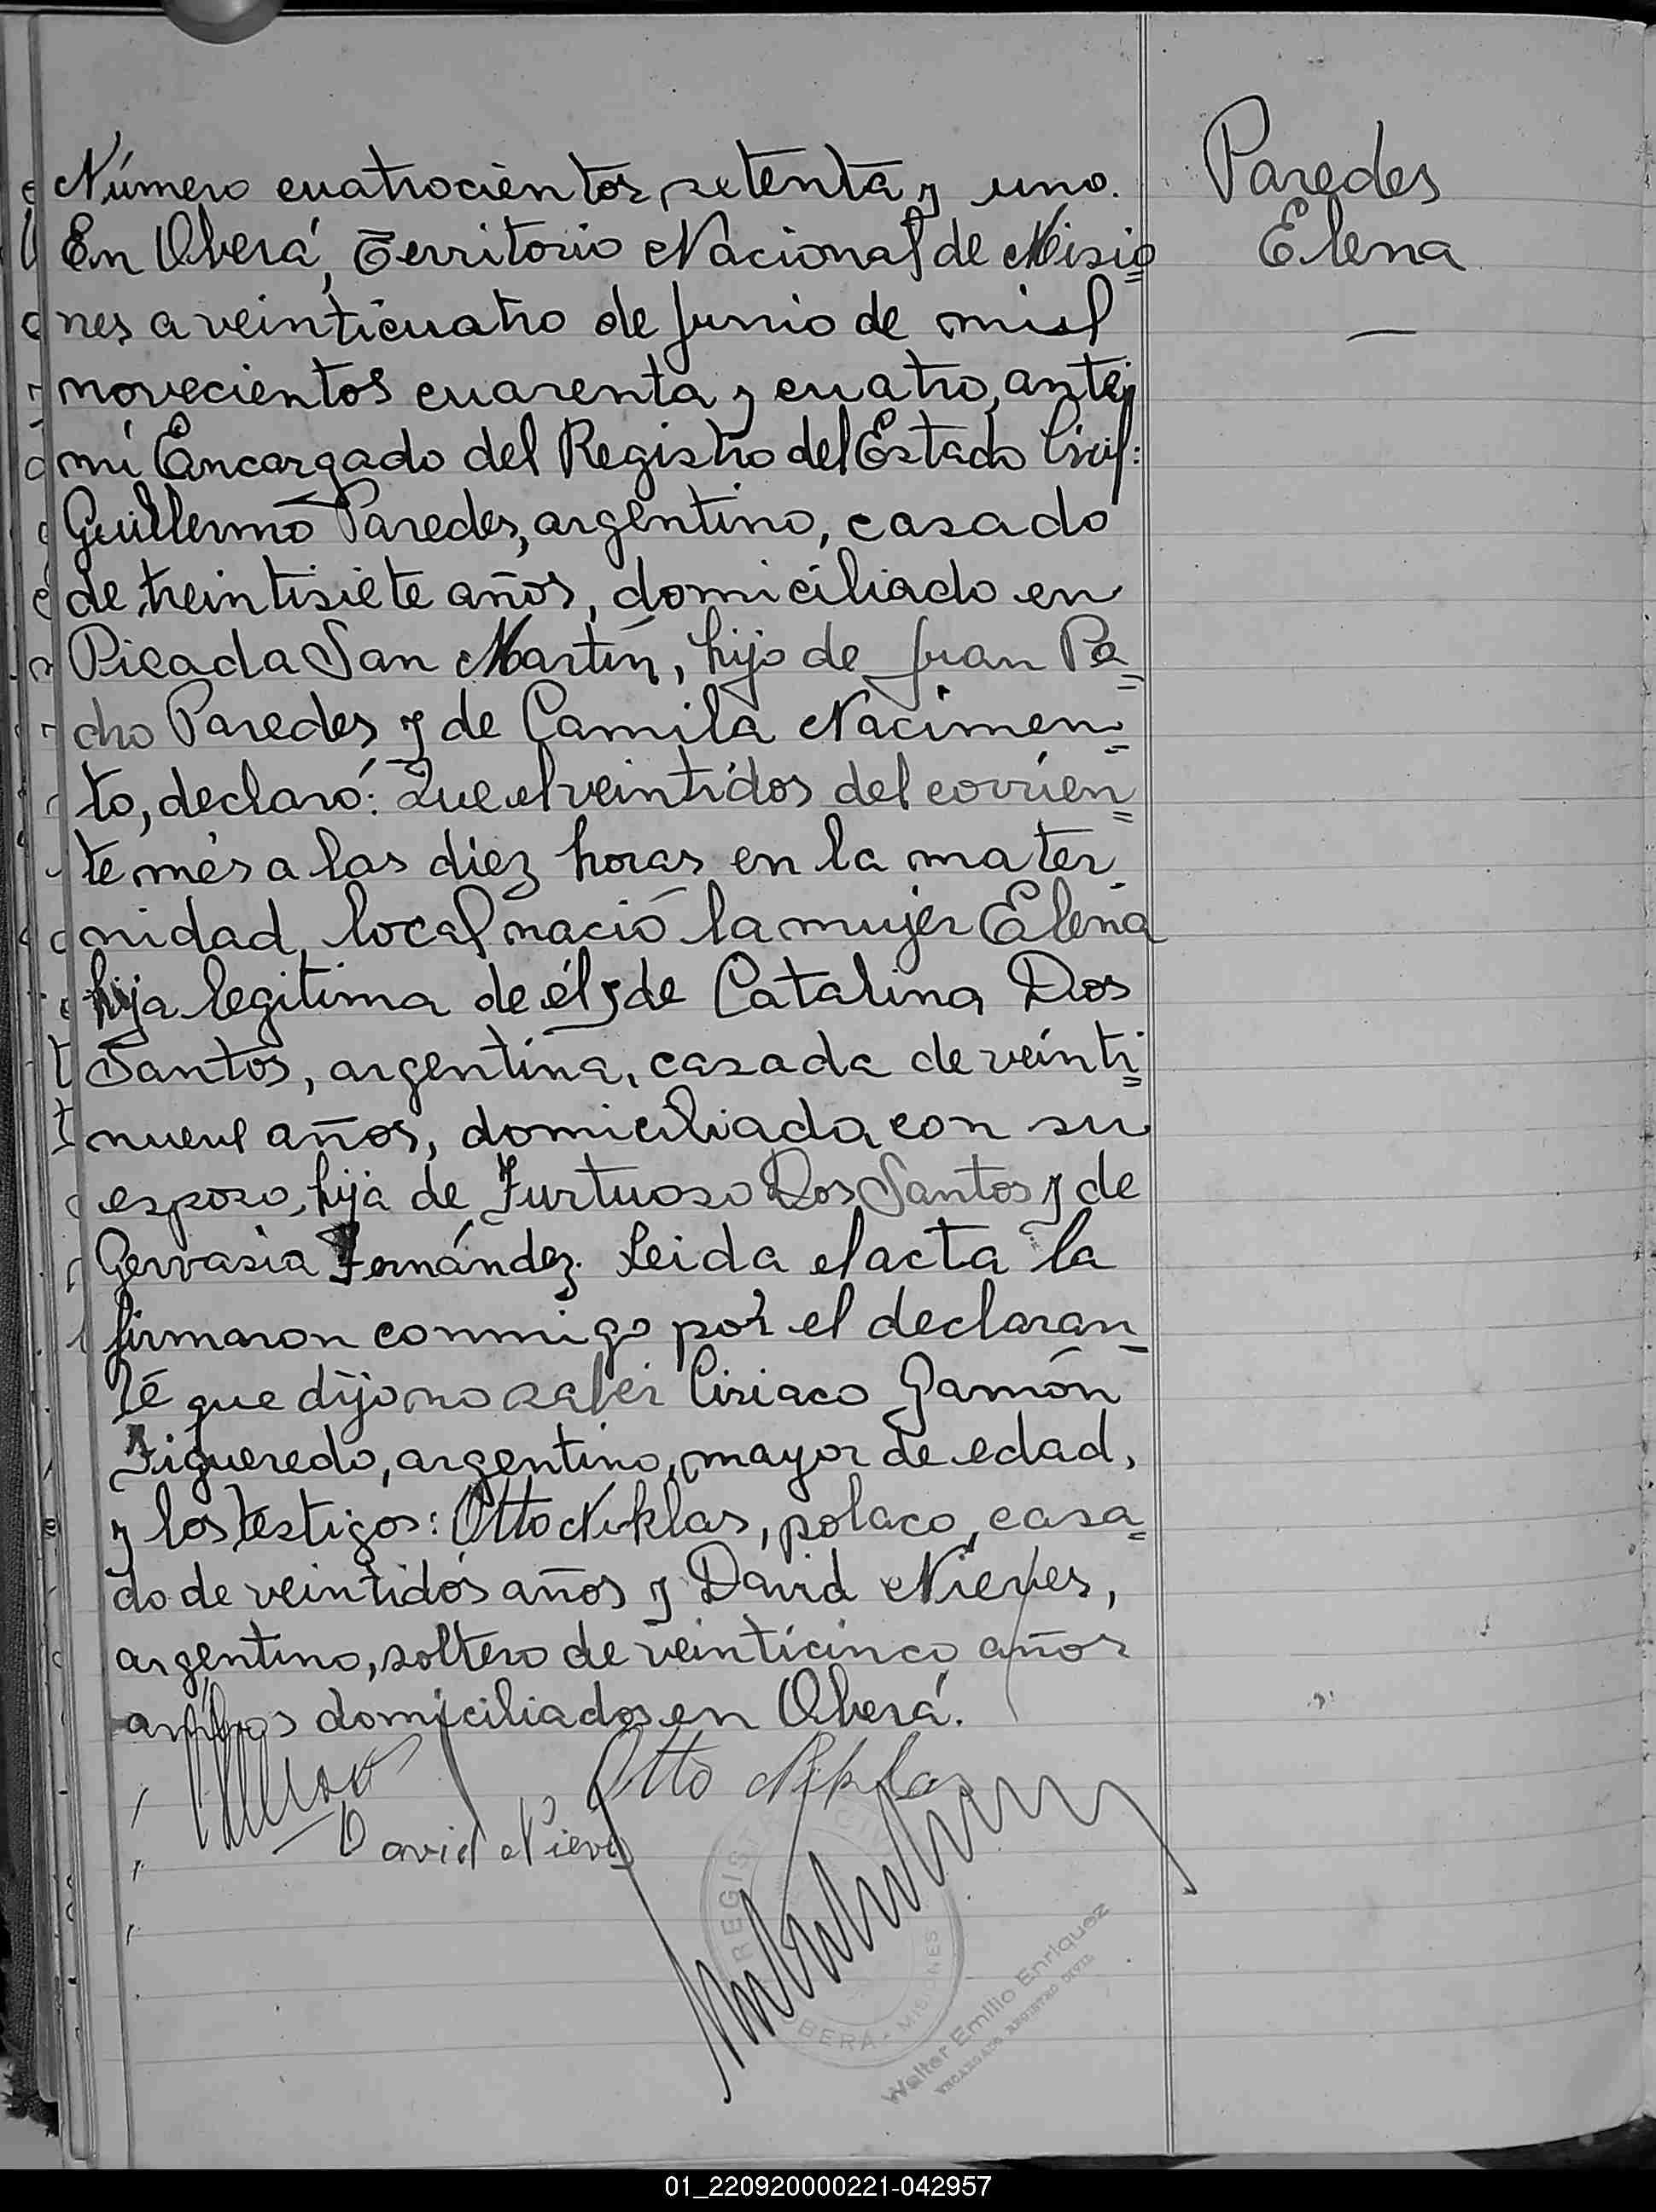 Número cuatrocientos setenta y uno.
En Oberá, Territorio Nacional de Misio
nes a veinticuatro de junio de mil
novecientos cuarenta y cuatro, ante
mí Encargado del Registro del Estado Civil:
Guillermo Paredes, argentino, casado
de treintisiete años, domiciliado en
Picada San Martín, hijo de Juan Pa=
cho Paredes y de Camila Nacimen=
to, declaró: Que el veintidos del corrien=
te més a las diez horas en la mater
nidad local nació la mujer Elena
hija legitima de él y de Catalina Dos
Santos, argentina, casada de veinti=
nueve años, domiciliada con su
esposo, hija de Furtuoso Dos Santos y de
Gervasia Fernández. Leida el acta la
firmaron conmigo por el declaran
te que dijo no saber Ciriaco Gamón
Figueredo, argentino, mayor de edad,
y los testigos: Otto Niklas, polaco, casa=
do de veintidós años y David Nieves,
argentino, soltero de veinticinco años
ambos domiciliados en Oberá.
Otto Niklas
David Nieves
Paredes
Elena
REGISTRO CIVIL
OBERA - MISIONES
Walter Emilio Enriquez
ENCARGADO REGISTRO CIVIL
01_220920000221-042957